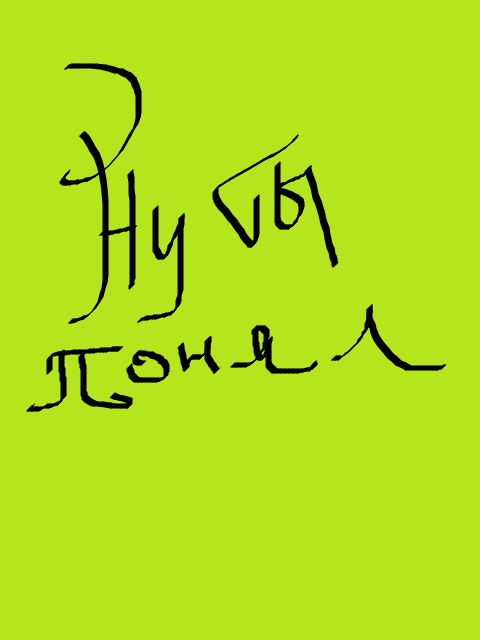 Ну бы
понял